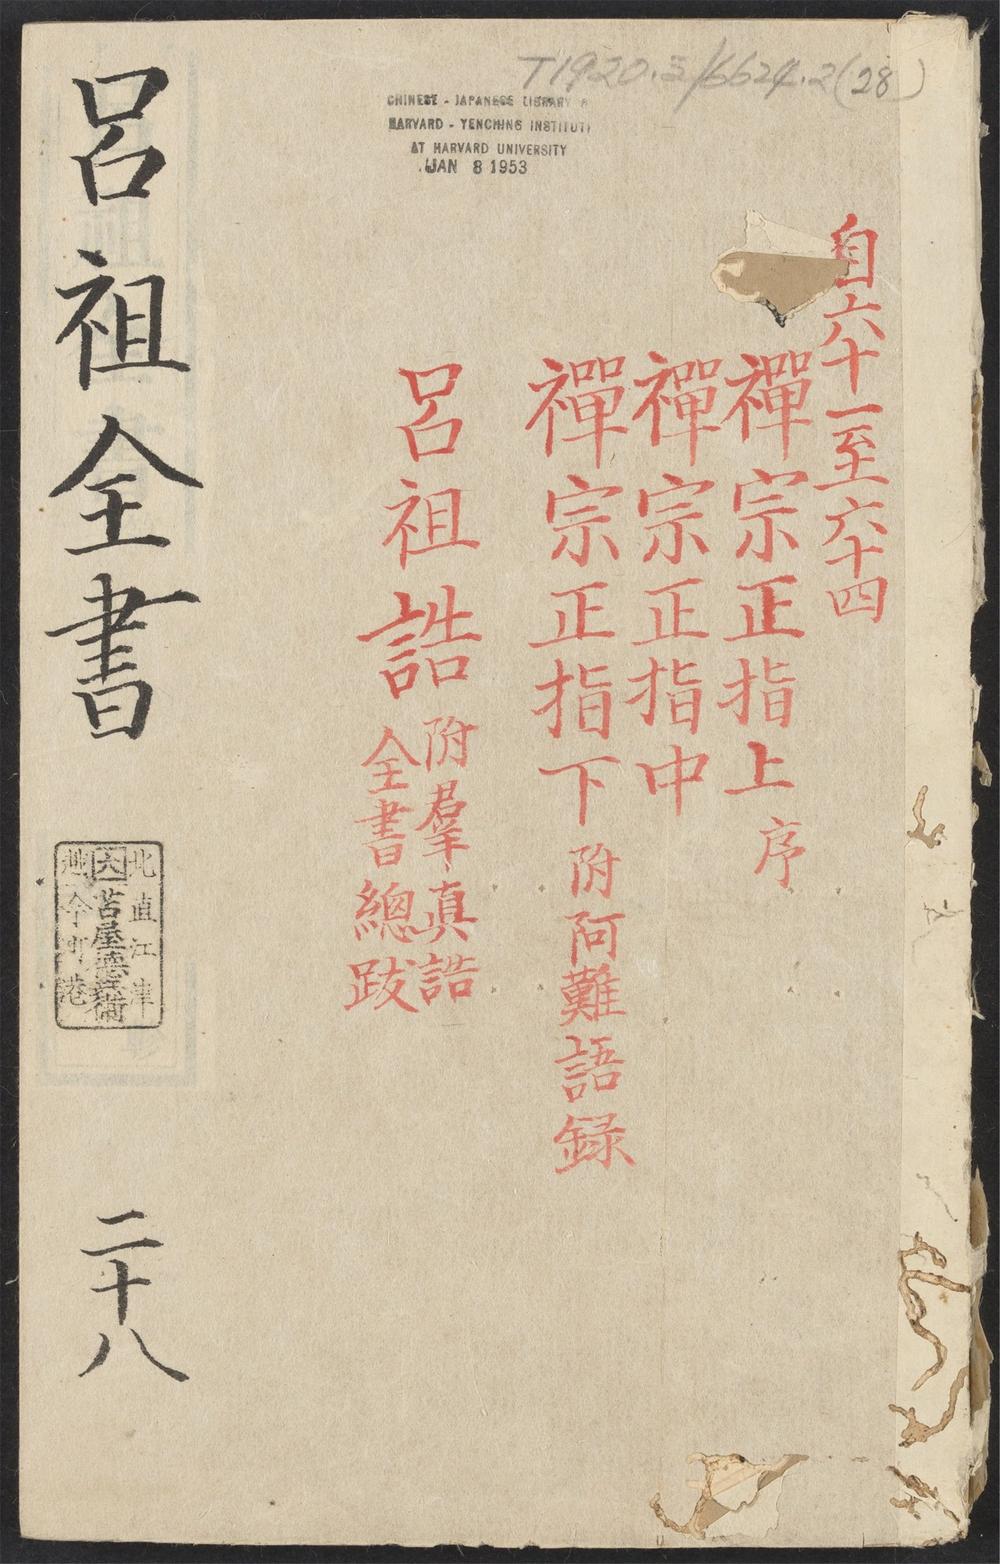 T1920.5/6624.2(28)
CHINESE - JAPANESE LIBRARY
HARVARD - YENCHING INSTITUT
AT HARVARD UNIVERSITY
JAN 8 1953
自六十一至六十四
禪宗正指上 序
禪宗正指中
禪宗正指下 附阿難語録
呂祖誥 附羣真誥
全書總跋
呂祖全書
二十八
北直江津
六 苫屋德兵衛
越今町港